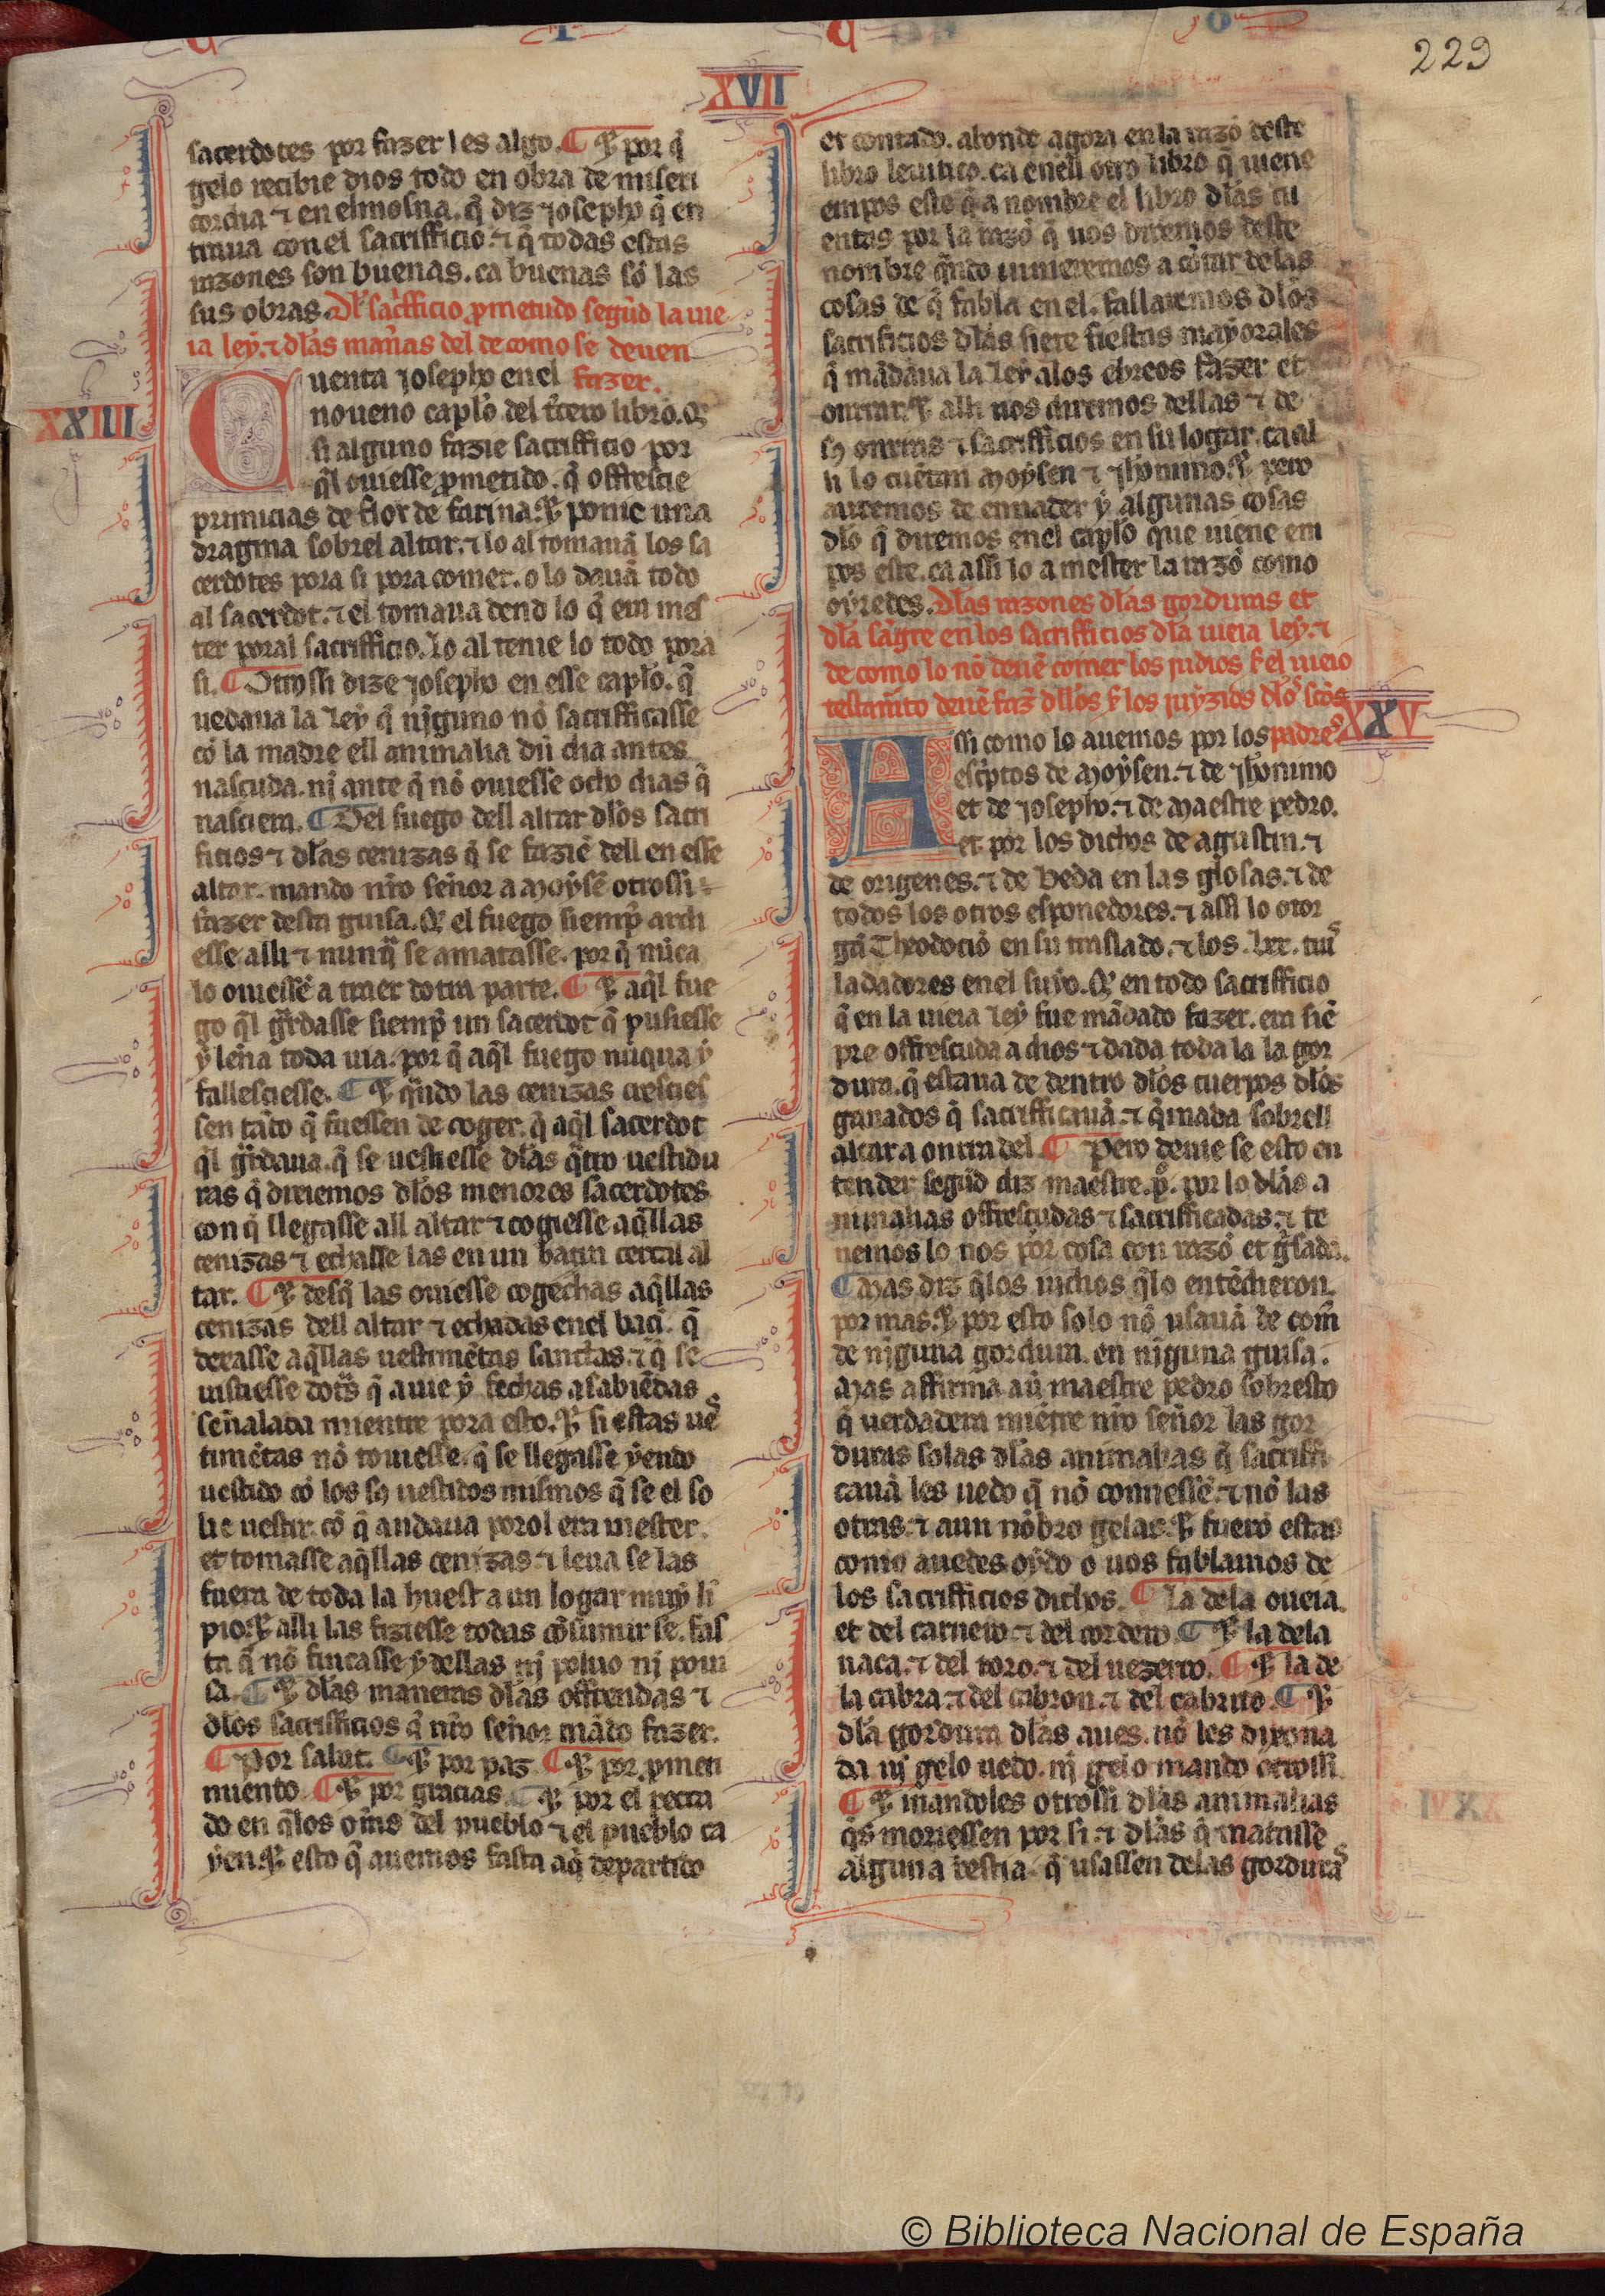 229
XVII
sacerdotes por fazer les algo. ¶ ⁊ por q̃
gelo recibie dios todo en obra de miseri
cordia ⁊ en elmosna. q̃ diz Josepho q̃ en
traua con el sacrifficio. ⁊ q̃ todas estas
razones son buenas. ca buenas sõ las
sus obras. Dl̃ sacrifficio ꝓmetudo segũd la uie
ia ley. ⁊ dlãs mañas del de como se deuen
fazer.
XXIIII
Cuenta Josepho en el
noueno caplõ del t̃cero libro. Q̃
si alguno fazie sacrifficio por
q̃l ouiesse ꝓmetido. q̃ offrescie
primicias de flor de farina. ⁊ ponie una
dragma sobrel altar. ⁊ lo al tomauã los sa
cerdotes pora si pora comer. o lo dauã todo
al sacerdot. ⁊ el tomaua dend lo q̃ era mes
ter poral sacrifficio. lo al tenie lo todo pora
si. ¶ Otrossi dize Josepho en esse caplõ. q̃
uedaua la ley q̃ njguno nõ sacrifficasse
cõ la madre ell animalia dũ dia antes
nascuda. nj ante q̃ nõ ouiesse ocho dias q̃
nasciera. ¶ Del fuego dell altar dlõs sacri
ficios ⁊ dlãs cenizas q̃ se fazie dell en esse
altar. mando nr̃o señor a Moysẽ otrossi
fazer desta guisa. Q̃ el fuego siemp̃ ardi
esse alli ⁊ nunq̃ se amatasse. por q̃ nũca
lo ouiessẽ a traer dotra parte. ¶ ⁊ aq̃l fue
go q̃l gr̃dasse siemp̃ un sacerdot q̃ pusiesse
y leña toda uia. por q̃ aq̃l fuego nũqua y
fallesciesse. ¶ ⁊ q̃ndo las cenizas cresciesse
sen tãto q̃ fuessen de coger. q̃ aq̃l sacerdot
q̃l gr̃daua. q̃ se uestiesse dlãs q̃tro uestidu
ras q̃ diriemos dlõs menores sacerdotes
con q̃ llegasse all altar ⁊ cogiesse aq̃llas
cenizas ⁊ echasse las en un bacin cercal al
tar. ¶ ⁊ desq̃ las ouiesse cogechas aq̃llas
cenizas dell altar ⁊ echadas en el baci. q̃
dexasse aq̃llas uestimẽtas sanctas. ⁊ q̃ se
uistiesse dotr̃s q̃ auie y fechas a sabiẽdas
señalada mientre pora esto. ⁊ si estas ues
timẽtas nõ touiesse. q̃ se llegasse yendo
uestido cõ los sus uestidos mismos q̃ se el so
lie uestir. cõ q̃ andaua porol era mester.
et tomasse aq̃llas cenizas ⁊ leua se las
fuera de toda la huest a un logar muy li
pio. ⁊ alli las fiziesse todas cõsumir se. fas
ta q̃ nõ fincasse y dellas nj poluo nj poui
sa. ¶ ⁊ dlãs maneras dlãs offrendas ⁊
dlõs sacrifficios q̃ nr̃o señor mãdo fazer.
¶ Por salut. ¶ ⁊ por paz. ¶ ⁊ por ꝓmeti
miento. ¶ ⁊ por gracias. ¶ ⁊ por el pecca
do en q̃ los om̃s del pueblo ⁊ el pueblo ca
yen. ⁊ esto q̃ auemos fasta aq̃ departido
et contado. abonde agora en la razõ deste
libro leuitico. ca en ell otro libro q̃ uiene
empos este q̃ a nombre el libro dlãs cu
entas por la razõ q̃ uos diremos deste
nombre q̃ndo uinieremos a cõtar de las
cosas de q̃ fabla en el. fallaremos dlõs
sacrificios dlãs siete fiestas mayorales
q̃ mãdaua la ley a los ebreos fazer et
onrrar. ⁊ alli uos diremos dellas ⁊ de
sus onrras ⁊ sacrifficios en su logar. ca al
li lo cuẽtan Moysen ⁊ Jheronimo. ⁊ pero
auremos de ennader y algunas cosas
dlo q̃ diremos en el caplõ que uiene em
pos este. ca assi lo a mester la razõ como
oyredes. Dlãs razones dlãs gorduras et
dlã sãgre en los sacrifficios dlã uieia ley. ⁊
de como lo nõ deuẽ comer los judios ⁊ el uieio
testam̃to deuẽ faz̃ dllõs ⁊ los juyzios dlos sc̃os
padres.
XXV
Assi como lo auemos por los
escptos de Moysen. ⁊ de Jheronimo
et de Josepho. ⁊ de Maestre pedro.
et por los dichos de agustin. ⁊
de origenes. ⁊ de Beda en las glosas. ⁊ de
todos los otros esponedores. ⁊ assi lo otor
gã Theodocio en su traslado. ⁊ los .lxx. tras
ladadores en el suyo. Q̃ en todo sacrifficio
q̃ en la uieia ley fue mãdado fazer. era siẽ
pre offrescuda a dios ⁊ dada toda la la gor
dura. q̃ estaua de dentro dlõs cuerpos dlõs
ganados q̃ sacrifficauã. ⁊ q̃mada sobrell
altar a onrra del. ¶ Pero deuie se esto en
tender segũd diz maestre .p̃. por lo dlãs a
nimalias offrescudas ⁊ sacrifficadas. ⁊ te
nemos lo nos por cosa con razõ et g̃sada.
¶ Mas diz q̃ los iudios q̃ lo entẽdieron.
por mas. ⁊ por esto solo nõ usauã de com̃
de njguna gordura. en njguna guisa.
Mas affirma aũ maestre pedro sobresto
q̃ uerdadera miẽtre nr̃o señor las gor
duras solas dlãs animalias q̃ sacriffi
cauã les uedo q̃ nõ comiessẽ. ⁊ nõ las
otras. ⁊ aun nõbro gelas. ⁊ fuerõ estas
como auedes oydo o uos fablamos de
los sacrifficios dichos. ¶ La de la oueia.
et del carnero. ⁊ del cordero. ¶ ⁊ la de la
uaca. ⁊ del toro. ⁊ del uezerro. ¶ ⁊ la de
la cabra. ⁊ del cabron. ⁊ del cabrito. ¶ ⁊
dlã gordura dlãs aues. nõ les dixo na
da nj gelo uedo. nj gelo mando otrossi.
¶ ⁊ mandoles otrossi dlãs animalias
q̃s moriessen por si. ⁊ dlãs q̃ matasse
alguna bestia. q̃ usassen de las gorduras
© Biblioteca Nacional de España